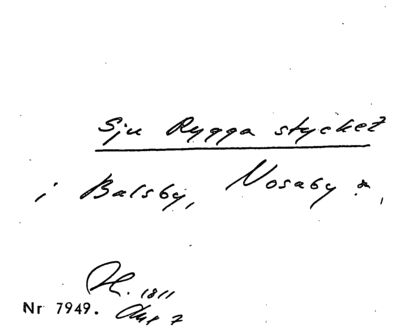 Sju Rygga stycket
i Balsby, Nosaby
H. 1811
Nr 7949. Akt 7